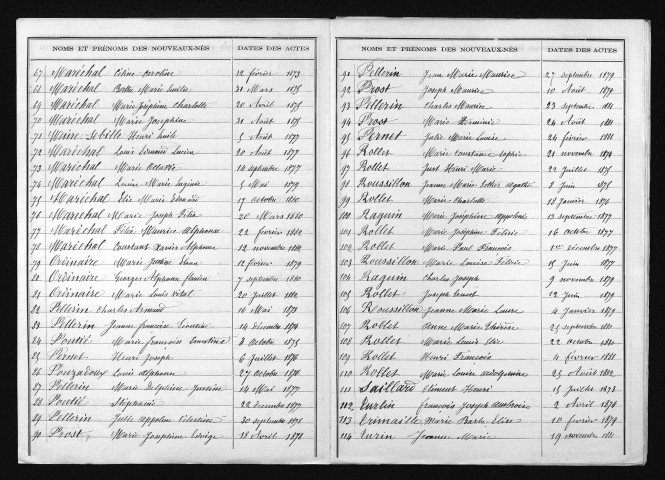 NOMS ET PRÉNOMS DES NOUVEAUX-NÉS DATES DES ACTES
67 Maréchal Céline Caroline 12 février 1873
68 Maréchal Marie Emilie 31 Mars 1875
69 Maréchal Marie Joséphine Charlotte 20 Avril 1875
70 Maréchal Marie Joséphine 31 Août 1875
71 Maire-Sebille Henri Emile 5 Août 1877
72 Maréchal Louis Lucien 20 Août 1877
73 Maréchal Marie 10 septembre 1877
74 Maréchal Louise Marie Eugénie 5 Mai 1879
75 Maréchal Elie Marie Edouard 17 octobre 1880
76 Maréchal Marie Joseph Félix 20 Mars 1880
77 Maréchal Félix Maurice Alphonse 22 février 1882
78 Maréchal Constant Xavier Alphonse 12 novembre 1882
79 Ordinaire Marie 12 février 1879
80 Ordinaire Georges Alphonse 7 septembre 1880
81 Ordinaire Marie Louis Vital 20 juillet 1882
82 Pellerin Charles Armand 16 Mai 1873
83 Pellerin Jeanne françoise 14 décembre 1874
84 Pontié Marie françois 3 Octobre 1875
85 Pernet Henri Joseph 6 juillet 1876
86 Louis Alphonse 27 octobre 1876
87 Pellerin Marie Delphine 14 Mai 1877
88 Pontié Stéphanie 22 décembre 1877
89 Pellerin Julie Appoline Célestine 30 septembre 1878
90 Prost Marie Josephine 18 Avril 1878
NOMS ET PRÉNOMS DES NOUVEAUX-NÉS DATES DES ACTES
91 Pellerin Jean Marie Maurice 27 septembre 1879
92 Prost Joseph Maurice 10 Août 1879
93 Pellerin Charles Maurice 23 septembre 1881
94 Prost Marie Herminie 26 Août 1881
95 Pernet Julie Marie Louise 26 février 1882
96 Rollet Marie Constance Sophie 21 novembre 1874
97 Rollet Just Henri Marie 22 juillet 1875
98 Roussillon Jeanne Marie Esther Agathe 8 juin 1875
99 Rollet Marie Charlotte 18 Janvier 1876
100 Raguin Marie Joséphine Appoline 13 septembre 1877
101 Rollet Marie Joséphine 16 octobre 1877
102 Rollet Marie Paul François 1er décembre 1877
103 Roussillon Marie Louise 15 juin 1877
104 Raguin Charles Joseph 9 novembre 1879
105 Rollet Joseph Ernest 12 juin 1879
106 Roussillon Jeanne Marie Laure 4 janvier 1879
107 Rollet Anne Marie Thérèse 25 septembre 1880
108 Rollet Marie Louis Elie 22 octobre 1880
109 Rollet Henri François 4 février 1881
110 Rollet Marie Louise 25 Août 1882
111 Saillard Clément Henri 15 juillet 1873
112 françois Joseph Ambroise 2 Avril 1874
113 Vermaille Marie Elise 10 février 1879
114 Jeanne Marie 19 novembre 1880